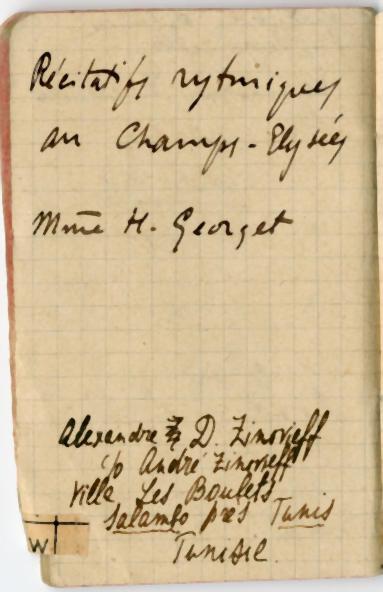 Récitatifs rytmiques
au Champs-Elysées
Mme H. Georget
Alexandre D. Zinovieff
c/o André Zinovieff
Villa Les Boulets
Salambo près Tunis
Tunisie.
W